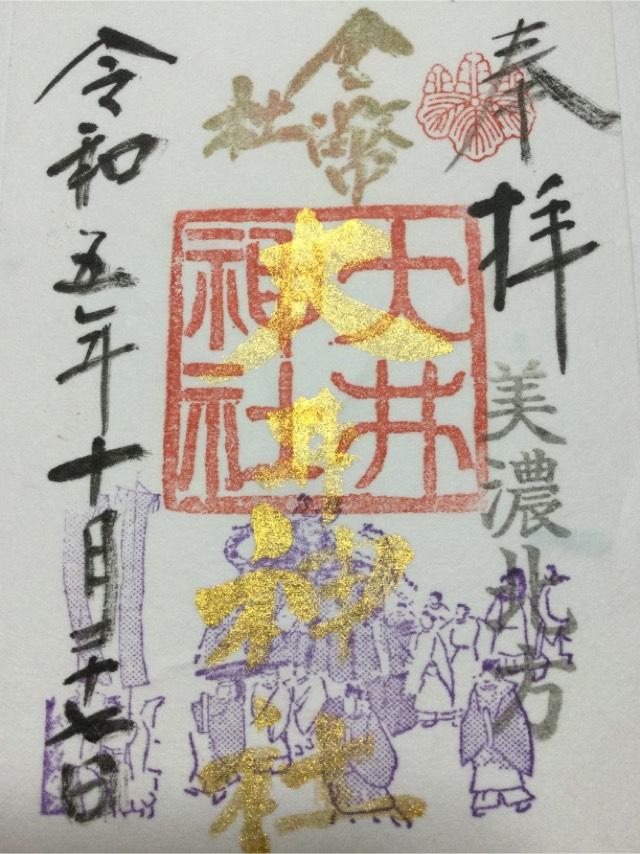 奉拝
美濃北方
金幣社
大井神社
大井神社
令和五年十月二十七日